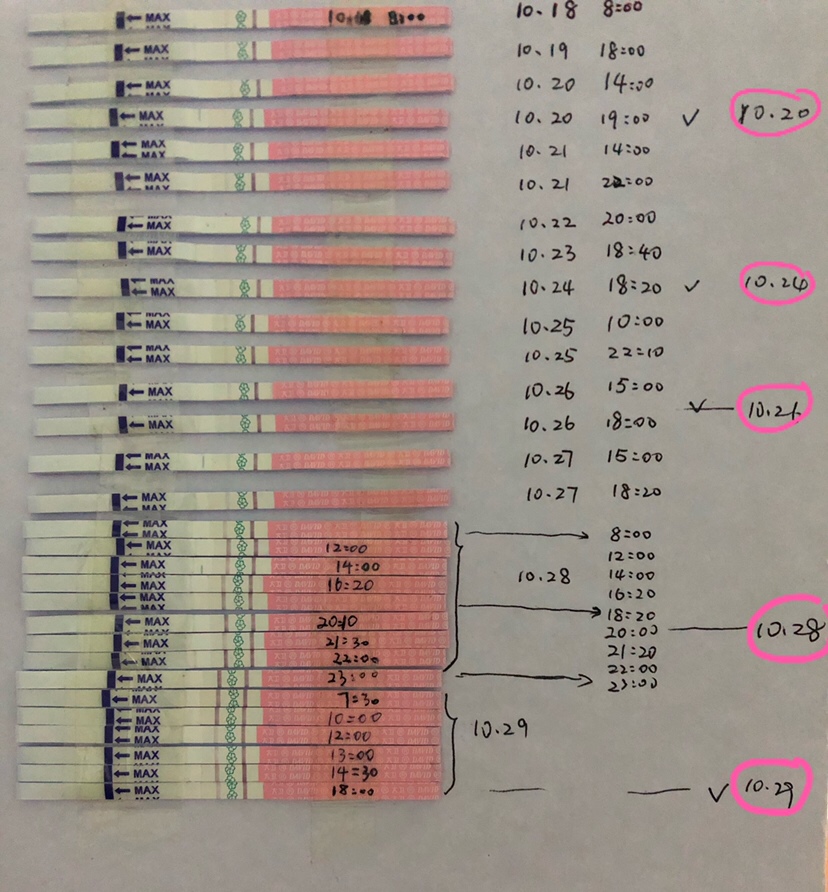 MAX 10.18 8:00 10.18 8:00
MAX 10.19 18:00
MAX 10.20 14:00
MAX 10.20 19:00 ✓ 10.20
MAX 10.21 14:00
MAX 10.21 22:00
MAX 10.22 20:00
MAX 10.23 18:40
MAX 10.24 18:20 ✓ 10.24
MAX 10.25 10:00
MAX 10.25 22:10
MAX 10.26 15:00
MAX 10.26 18:00 ✓ 10.26
MAX 10.27 15:00
MAX 10.27 18:20
MAX 8:00
MAX 12:00 12:00
MAX 14:00 10.28 14:00
MAX 16:20 16:20
MAX 18:20
MAX 20:10 20:00 10.28
MAX 21:30 21:20
MAX 22:00 22:00
MAX 23:00 23:00
MAX 7:30
MAX 10:00 10.29
MAX 12:00
MAX 13:00
MAX 14:30
MAX 18:00 ✓ 10.29